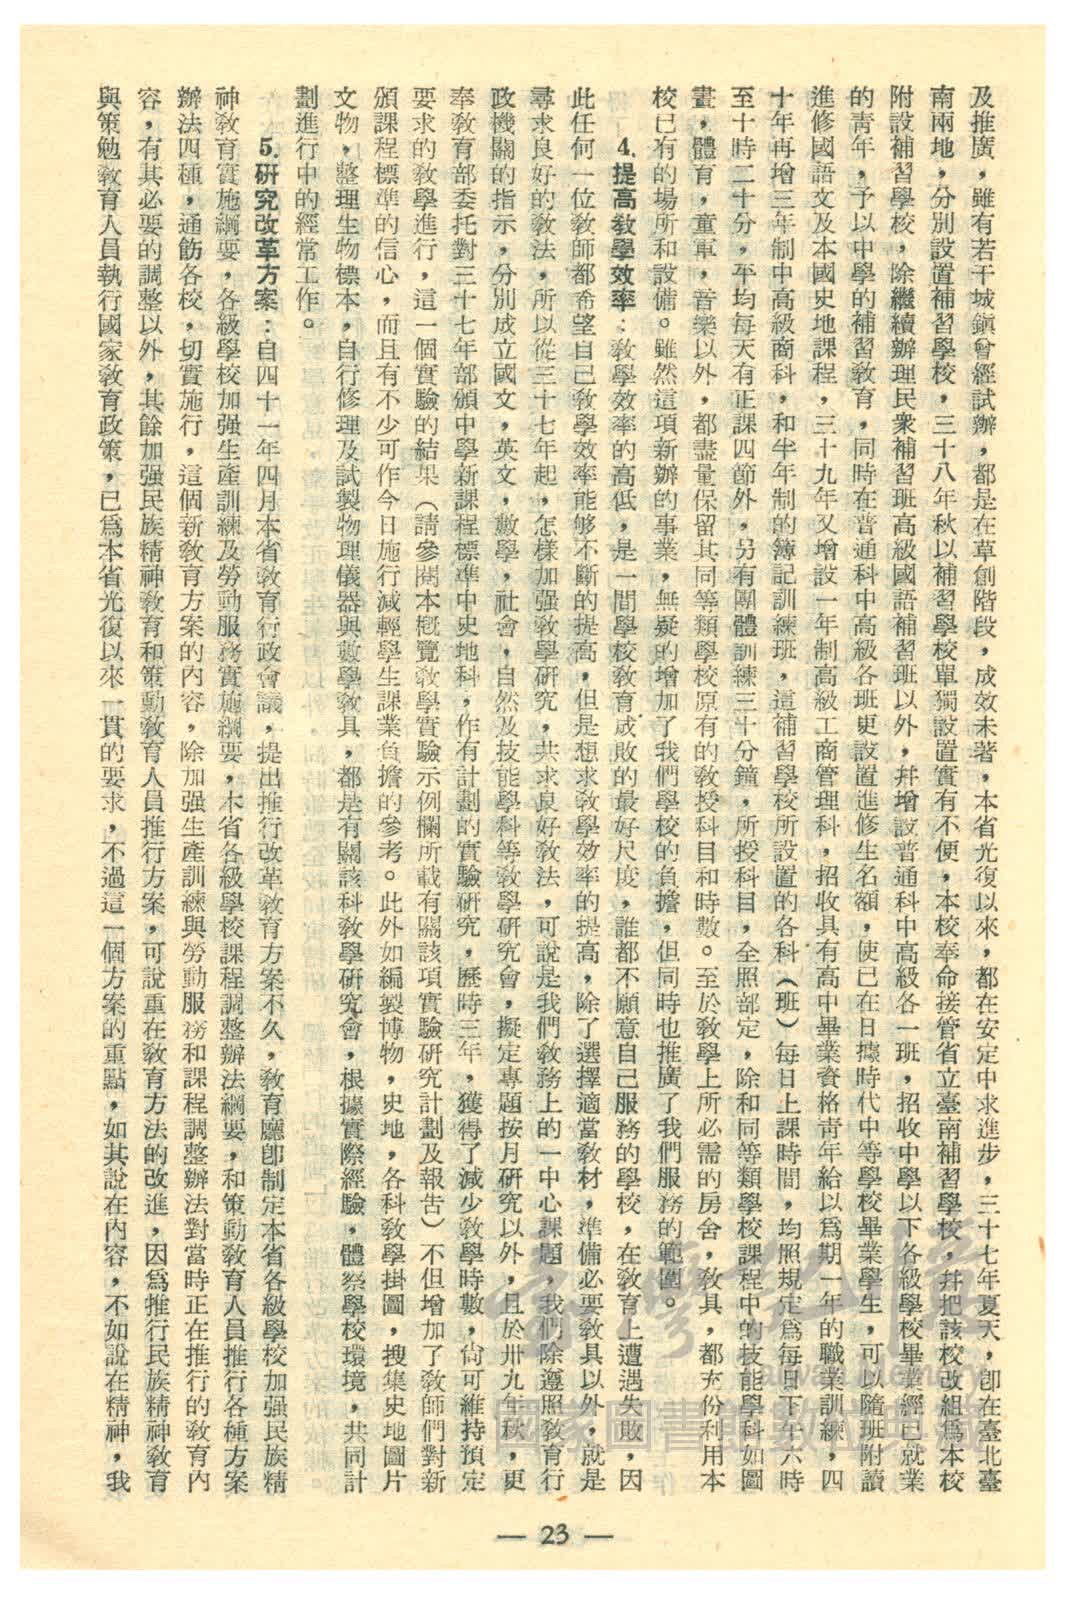 及推廣，雖有若干城鎭曾經試辦，都是在草創階段，成效未著，本省光復以來，都在安定中求進步，三十七年夏天，卽在臺北臺
南兩地，分別設置補習學校，三十八年秋以補習學校單獨設置實有不便，本校奉命接管省立臺南補習學校，幷把該校改組爲本校
附設補習學校，除繼續辦理民衆補習班高級國語補習班以外，幷增設普通科中高級各一班，招收中學以下各級學校畢業經已就業
的靑年，予以中學的補習敎育，同時在普通科中高級各班更設置進修生名額，使已在日據時代中等學校畢業學生，可以隨班附讀
進修國語文及本國史地課程，三十九年又增設一年制高級工商管理科，招收具有高中畢業資格靑年給以爲期一年的職業訓練，四
十年再增三年制中高級商科，和半年制的簿記訓練班，這補習學校所設置的各科（班）每日上課時間，均照規定爲每日下午六時
至十時二十分，平均每天有正課四節外，另有團體訓練三十分鐘，所授科目，全照部定，除和同等類學校課程中的技能學科如圖
畫，體育，童軍，音樂以外，都盡量保留其同等類學校原有的敎授科目和時數。至於敎學上所必需的房舍，敎具，都充份利用本
校已有的場所和設備。雖然這項新辦的事業，無疑的增加了我們學校的負擔，但同時也推廣了我們服務的範圍。
4.提高敎學效率：敎學效率的高低，是一間學校敎育成敗的最好尺度，誰都不願意自己服務的學校，在敎育上遭遇失敗，因
此任何一位敎師都希望自己敎學效率能够不斷的提高，但是想求敎學效率的提高，除了選擇適當敎材，準備必要敎具以外，就是
尋求良好的敎法，所以從三十七年起，怎樣加强敎學研究，共求良好敎法，可說是我們敎務上的一中心課題，我們除遵照敎育行
政機關的指示，分別成立國文，英文，數學，社會，自然及技能學科等敎學研究會，擬定專題按月研究以外，且於卅九年秋，更
奉敎育部委托對三十七年部頒中學新課程標準中史地科，作有計劃的實驗研究，歷時三年，獲得了減少敎學時數，尙可維持預定
要求的敎學進行，這一個實驗的結果（請參閱本槪覽敎學實驗示例欄所載有關該項實驗研究計劃及報吿）不但增加了敎師們對新
頒課程標準的信心，而且有不少可作今日施行減輕學生課業負擔的參考。此外如編製博物，史地，各科敎學掛圖，搜集史地圖片
文物，整理生物標本，自行修理及試製物理儀器與數學敎具，都是有關該科敎學研究會，根據實際經驗，體察學校環境，共同計
劃進行中的經常工作。
5.研究改革方案：自四十一年四月本省敎育行政會議，提出推行改革敎育方案不久，敎育廳卽制定本省各級學校加强民族精
神敎育實施綱要，各級學校加强生產訓練及勞動服務實施綱要，本省各級學校課程調整辦法綱要，和策動敎育人員推行各種方案
辦法四種，通飭各校，切實施行，這個新敎育方案的內容，除加强生產訓練與勞動服務和課程調整辦法對當時正在推行的敎育內
容，有其必要的調整以外，其餘加强民族精神敎育和策動敎育人員推行方案，可說重在敎育方法的改進，因爲推行民族精神敎育
與策勉敎育人員執行國家敎育政策，已爲本省光復以來一貫的要求，不過這一個方案的重點，如其說在內容，不如說在精神，我
— 23 —
臺灣記憶
Taiwan Memory
國家圖書館數位典藏